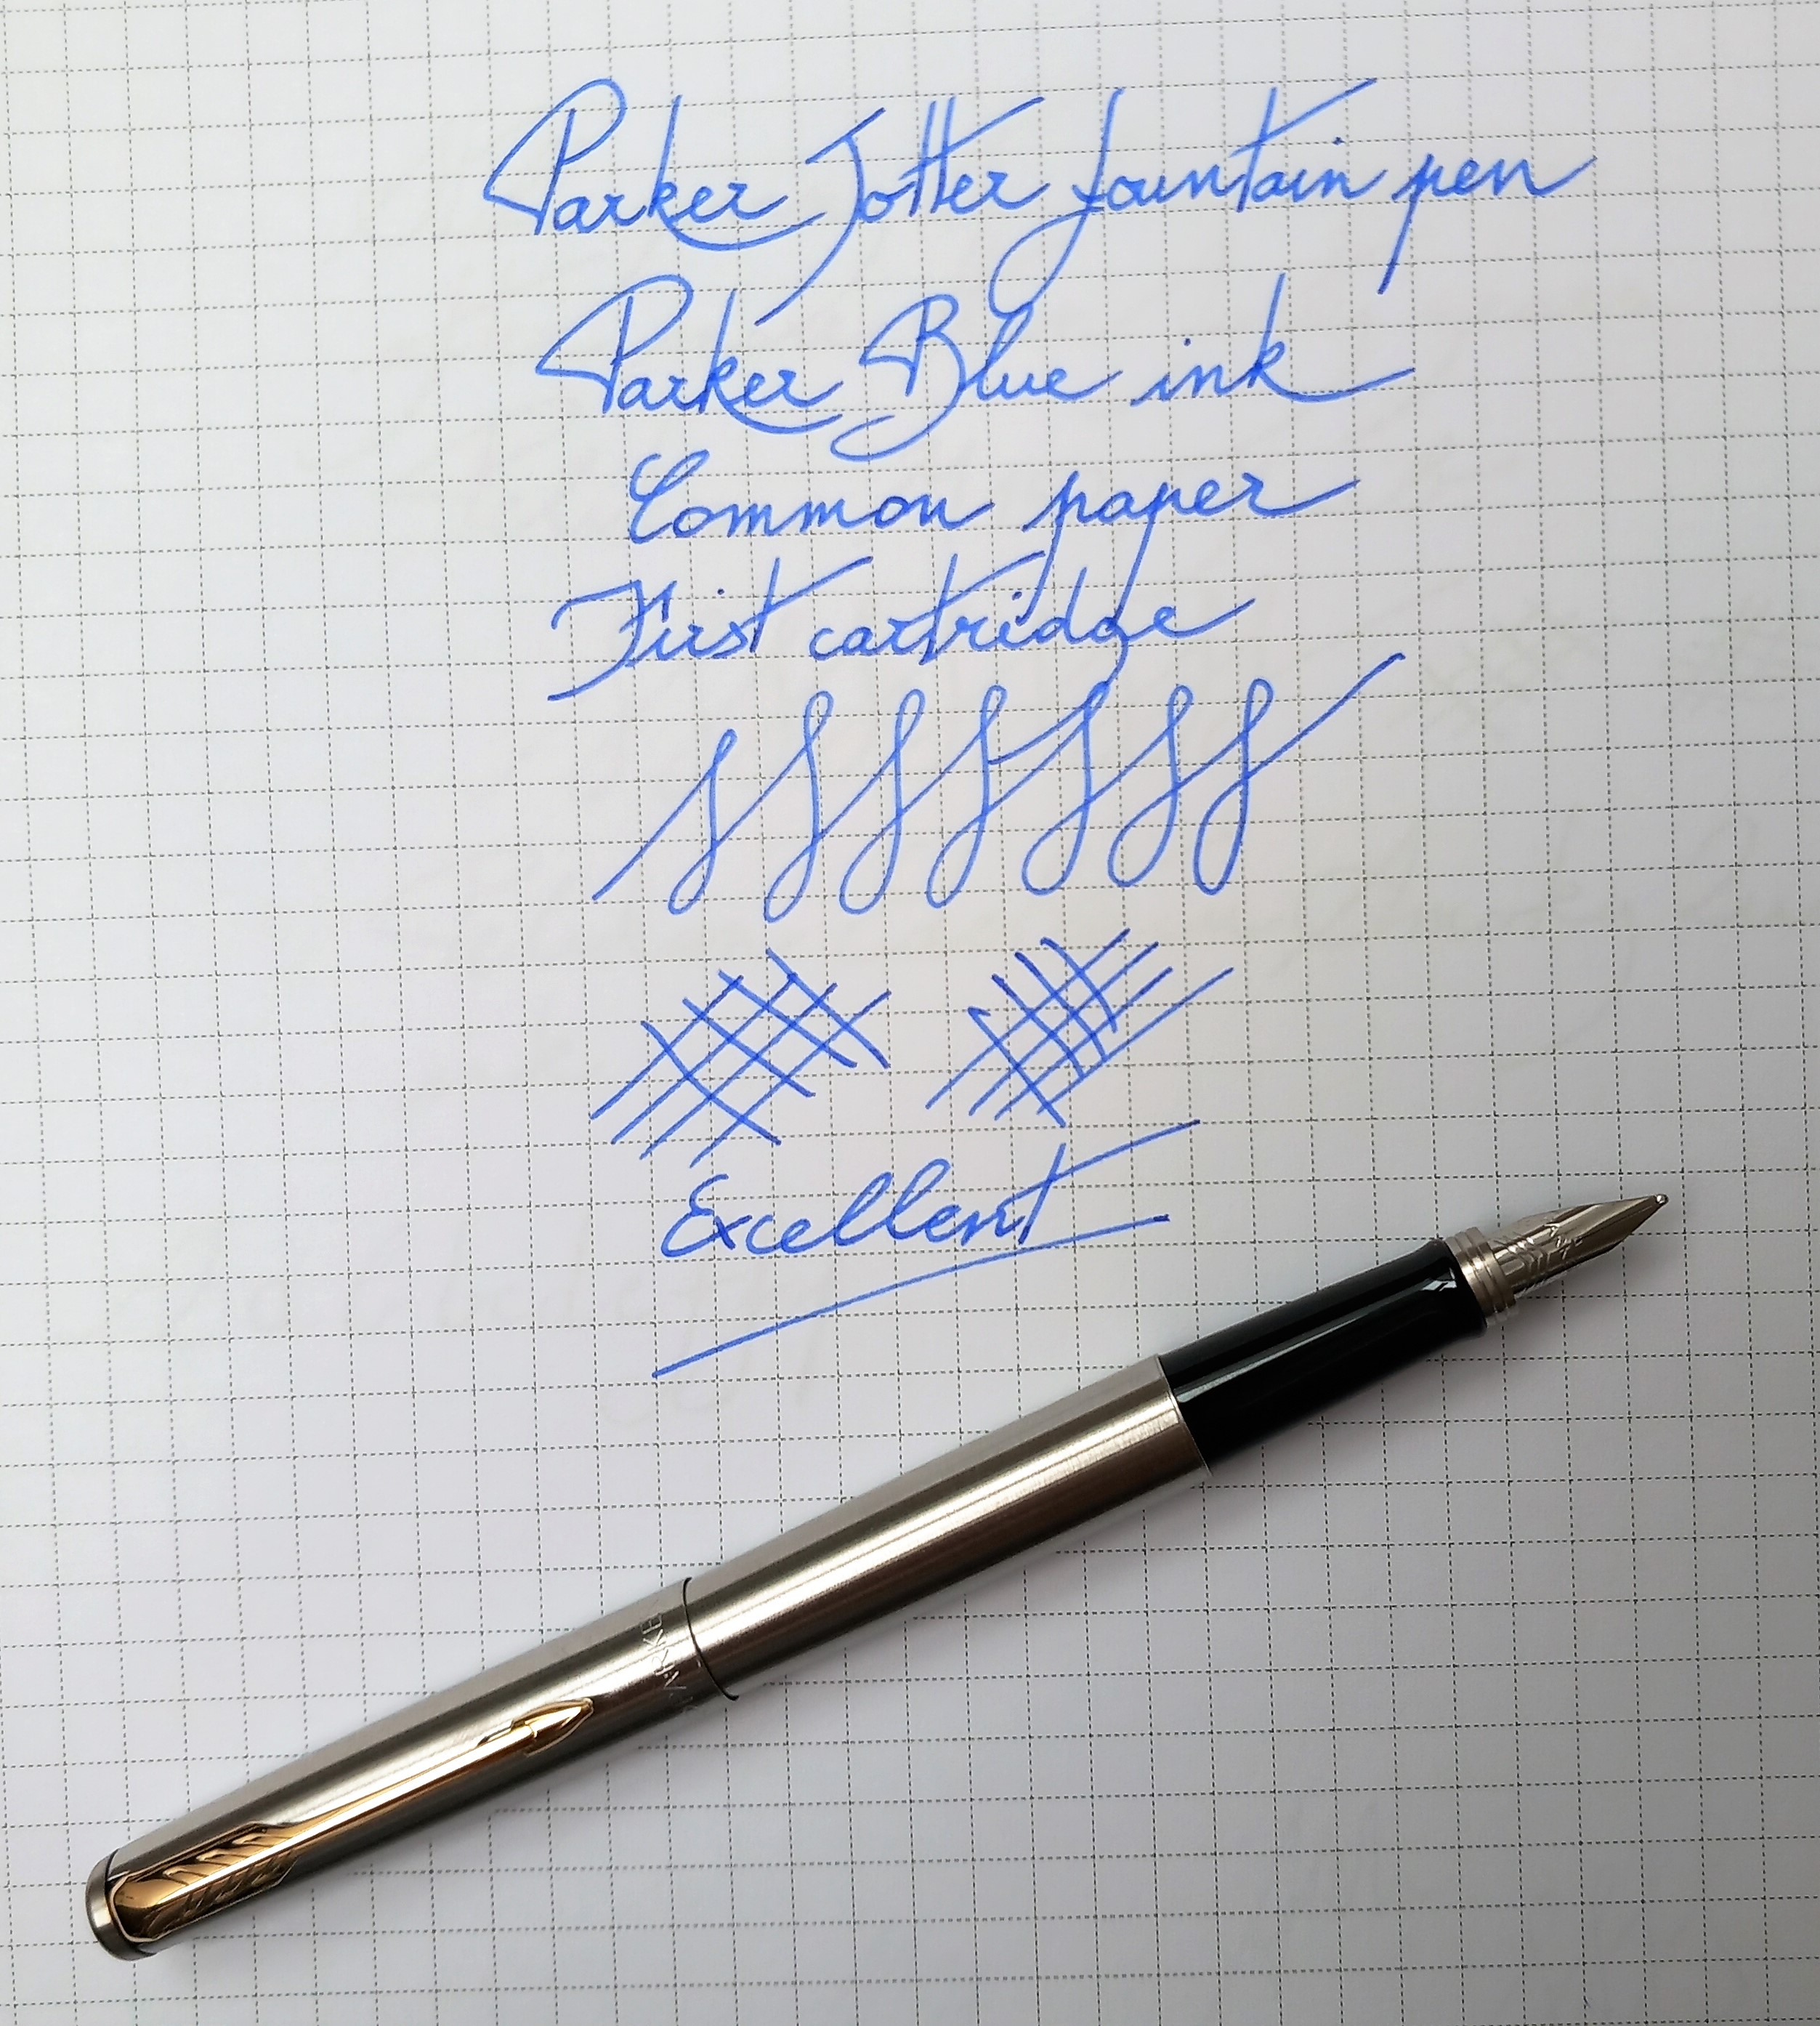 Parker Jotter fountain pen
Parker Blue ink
Common paper
First cartridge
Excellent
PARKER